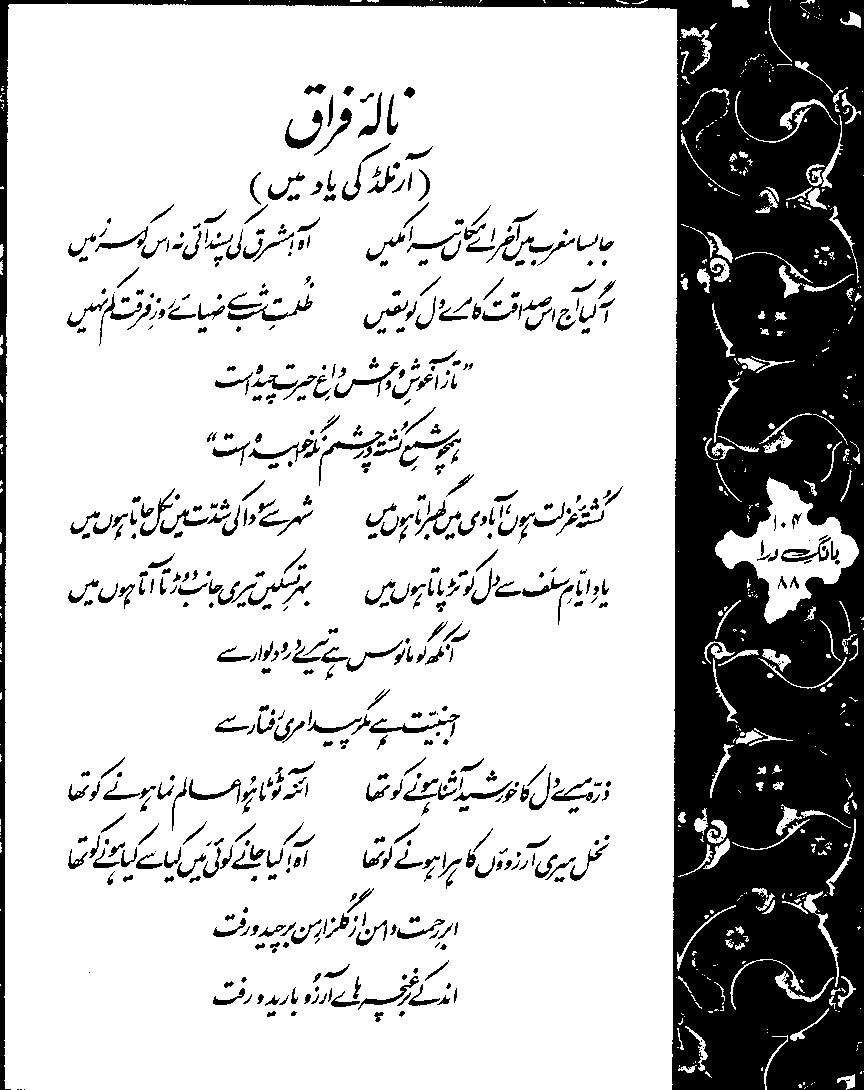 نالۂ فراق
(آرنلڈ کی یاد میں)
جا بسا مغرب میں آخر اے مکاں تیرا مکیں    آہ! مشرق کی پسند آئی نہ اس کو سرزمیں
آ گیا آج اس صداقت کا مرے دل کو یقیں    ظُلمتِ شب سے ضیائے روزِ فرقت کم نہیں
”تا ز آغوشِ وداعش داغِ حیرت چیدہ است
ہمچو شمعِ کُشتہ در چشمم نگہ خوابیدہ است“
کُشتۂ عُزلت ہوں، آبادی میں گھبراتا ہوں میں    شہر سے سَودا کی شدّت میں نکل جاتا ہوں میں
یادِ ایّامِ سلَف سے دل کو تڑپاتا ہوں میں    بہرِ تسکیں تیری جانب دَوڑتا آتا ہوں میں
آنکھ گو مانوس ہے تیرے در و دیوار سے
اجنبیّت ہے مگر پیدا مری رفتار سے
ذرّہ میرے دل کا خورشید آشنا ہونے کو تھا    آئنہ ٹُوٹا ہُوا عالم نما ہونے کو تھا
نخل میری آرزوؤں کا ہرا ہونے کو تھا    آہ! کیا جانے کوئی مَیں کیا سے کیا ہونے کو تھا
ابرِ رحمت دامن از گلزارِ من برچید و رفت
اندکے بر غنچہ ہائے آرزُو بارید و رفت
۱۰۴
بانگِ درا
۸۸